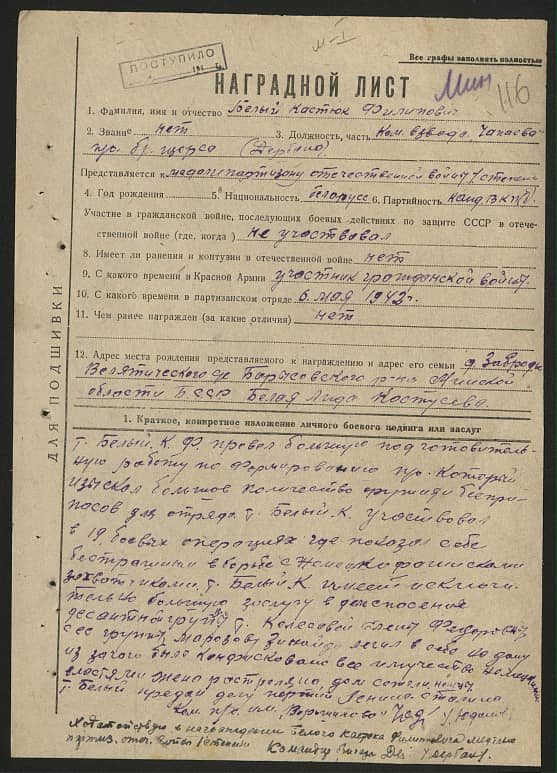 ПОСТУПИЛО
М-I
Все графы заполнять полностью
Мин
116
НАГРАДНОЙ ЛИСТ
1. Фамилия, имя и отчество Белый Кастюк Филипович
2. Звание нет 3. Должность, часть Ком. взвода, Чапаева
п/о. бр. Щорса
Представляется к медали партизану отечественной войны I степени
4. Год рождения 5. Национальность белорусс 6. Партийность канд. ВКП/б/
Участие в гражданской войне, последующих боевых действиях по защите СССР в отече-
ственной войне (где, когда) не участвовал
8. Имеет ли ранения и контузии в отечественной войне нет
9. С какого времени в Красной Армии участник гражданской войны
10. С какого времени в партизанском отряде 6. мая 1942 г.
11. Чем ранее награжден (за какие отличия) нет
12. Адрес места рождения представляемого к награждению и адрес его семьи д. Забродье
Велятического с/с Борисовского р-на Минской
области БССР Белая Лида Кастусева.
ДЛЯ ПОДШИВКИ
1. Краткое, конкретное изложение личного боевого подвига или заслуг
т. Белый К. Ф. провел большую подготовитель-
ную работу по формированию п/о. Который
изыскал большое количество оружия и боепри-
пасов для отряда. т. Белый К. участвовал
в 19 боевых операциях где показал себя
бестрашным в борьбе с Немецко фашискими
захватчиками. т. Белый К имеет исключи-
тельно большую заслугу в доле спасения
десантной группы т. Колесовой Елены Федоровны
с ее группы Марозову Зинаиду лечил в себя на дому
из за чего было конфисковано все имущество немецкими
властями жена растреляна, дом сожгли немцы
т. Белый предан делу партии Ленина Сталина
Ком. п/о. им. "Ворошилова"
Ходатайствую о награждении Белого Кастюка Филиповича медалью
партиз. отеч. войны I степени Командир бригады